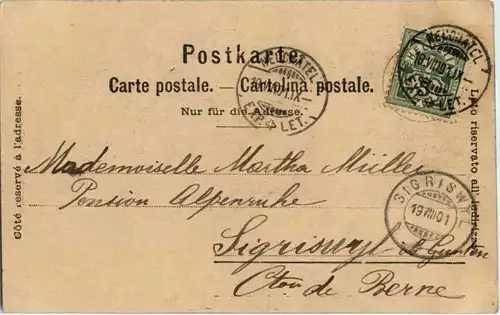 Postkarte.
Carte postale. — Cartolina postale.
Nur für die Adresse.
Côté reservé à l'adresse.
Lato riservato all'indirizzo.
NEUCHATEL
EXP. LET.
NEUCHATEL
LET.
Mademoiselle Martha Müller
Pension Alpenruhe
Sigriswyl s/ Gunten
Cton de Berne
SIGRISWYL
19 VIII 01